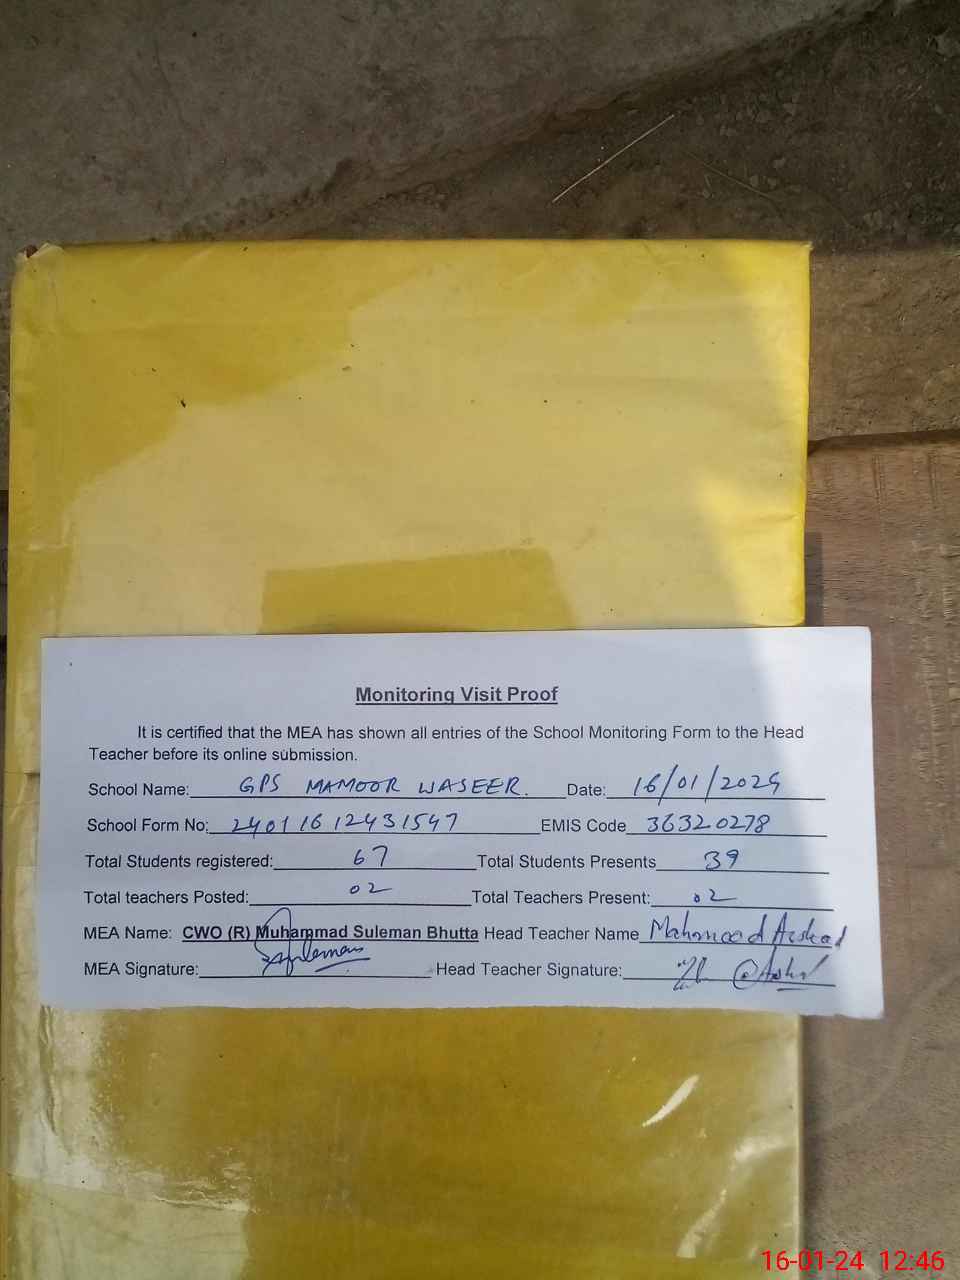 Monitoring Visit Proof
It is certified that the MEA has shown all entries of the School Monitoring Form to the Head
Teacher before its online submission.
School Name: GPS MAMOOR WASEER. Date: 16/01/2024
School Form No: 24011612431547 EMIS Code 36320278
Total Students registered: 67 Total Students Presents 39
Total teachers Posted: 02 Total Teachers Present: 02
MEA Name: CWO (R) Muhammad Suleman Bhutta Head Teacher Name Mahmood Arshad
MEA Signature: Head Teacher Signature:
16-01-24 12:46